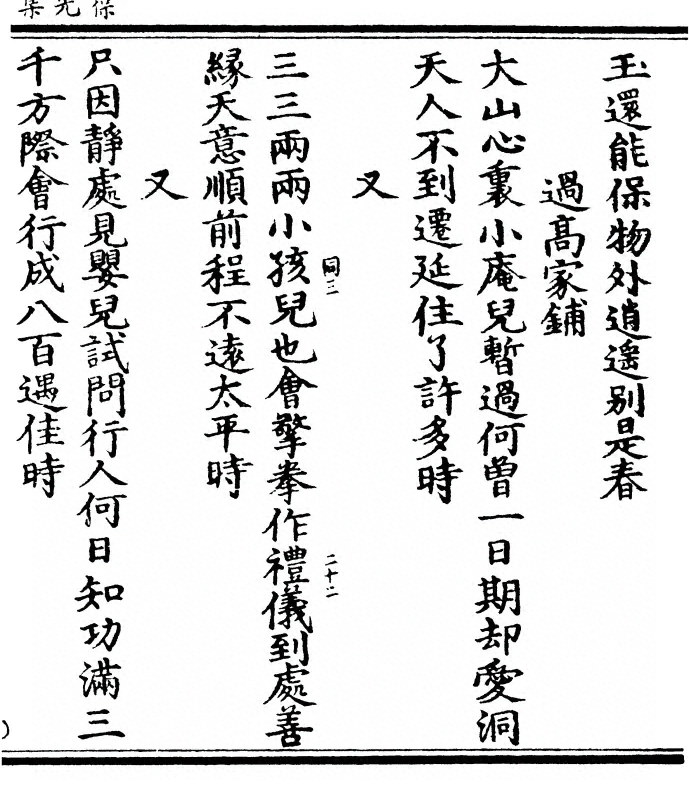 玉還能保物外逍遥别是春
過髙家鋪
大山心裏小庵兒暫過何曽一日期却愛洞
天人不到遷延住了許多時
又
三三兩兩小孩兒也會擎拳作禮儀到處善
緣天意順前程不遠太平時
又
只因靜處見嬰兒試問行人何日知功滿三
千方際會行成八百遇佳時
同三
二十二